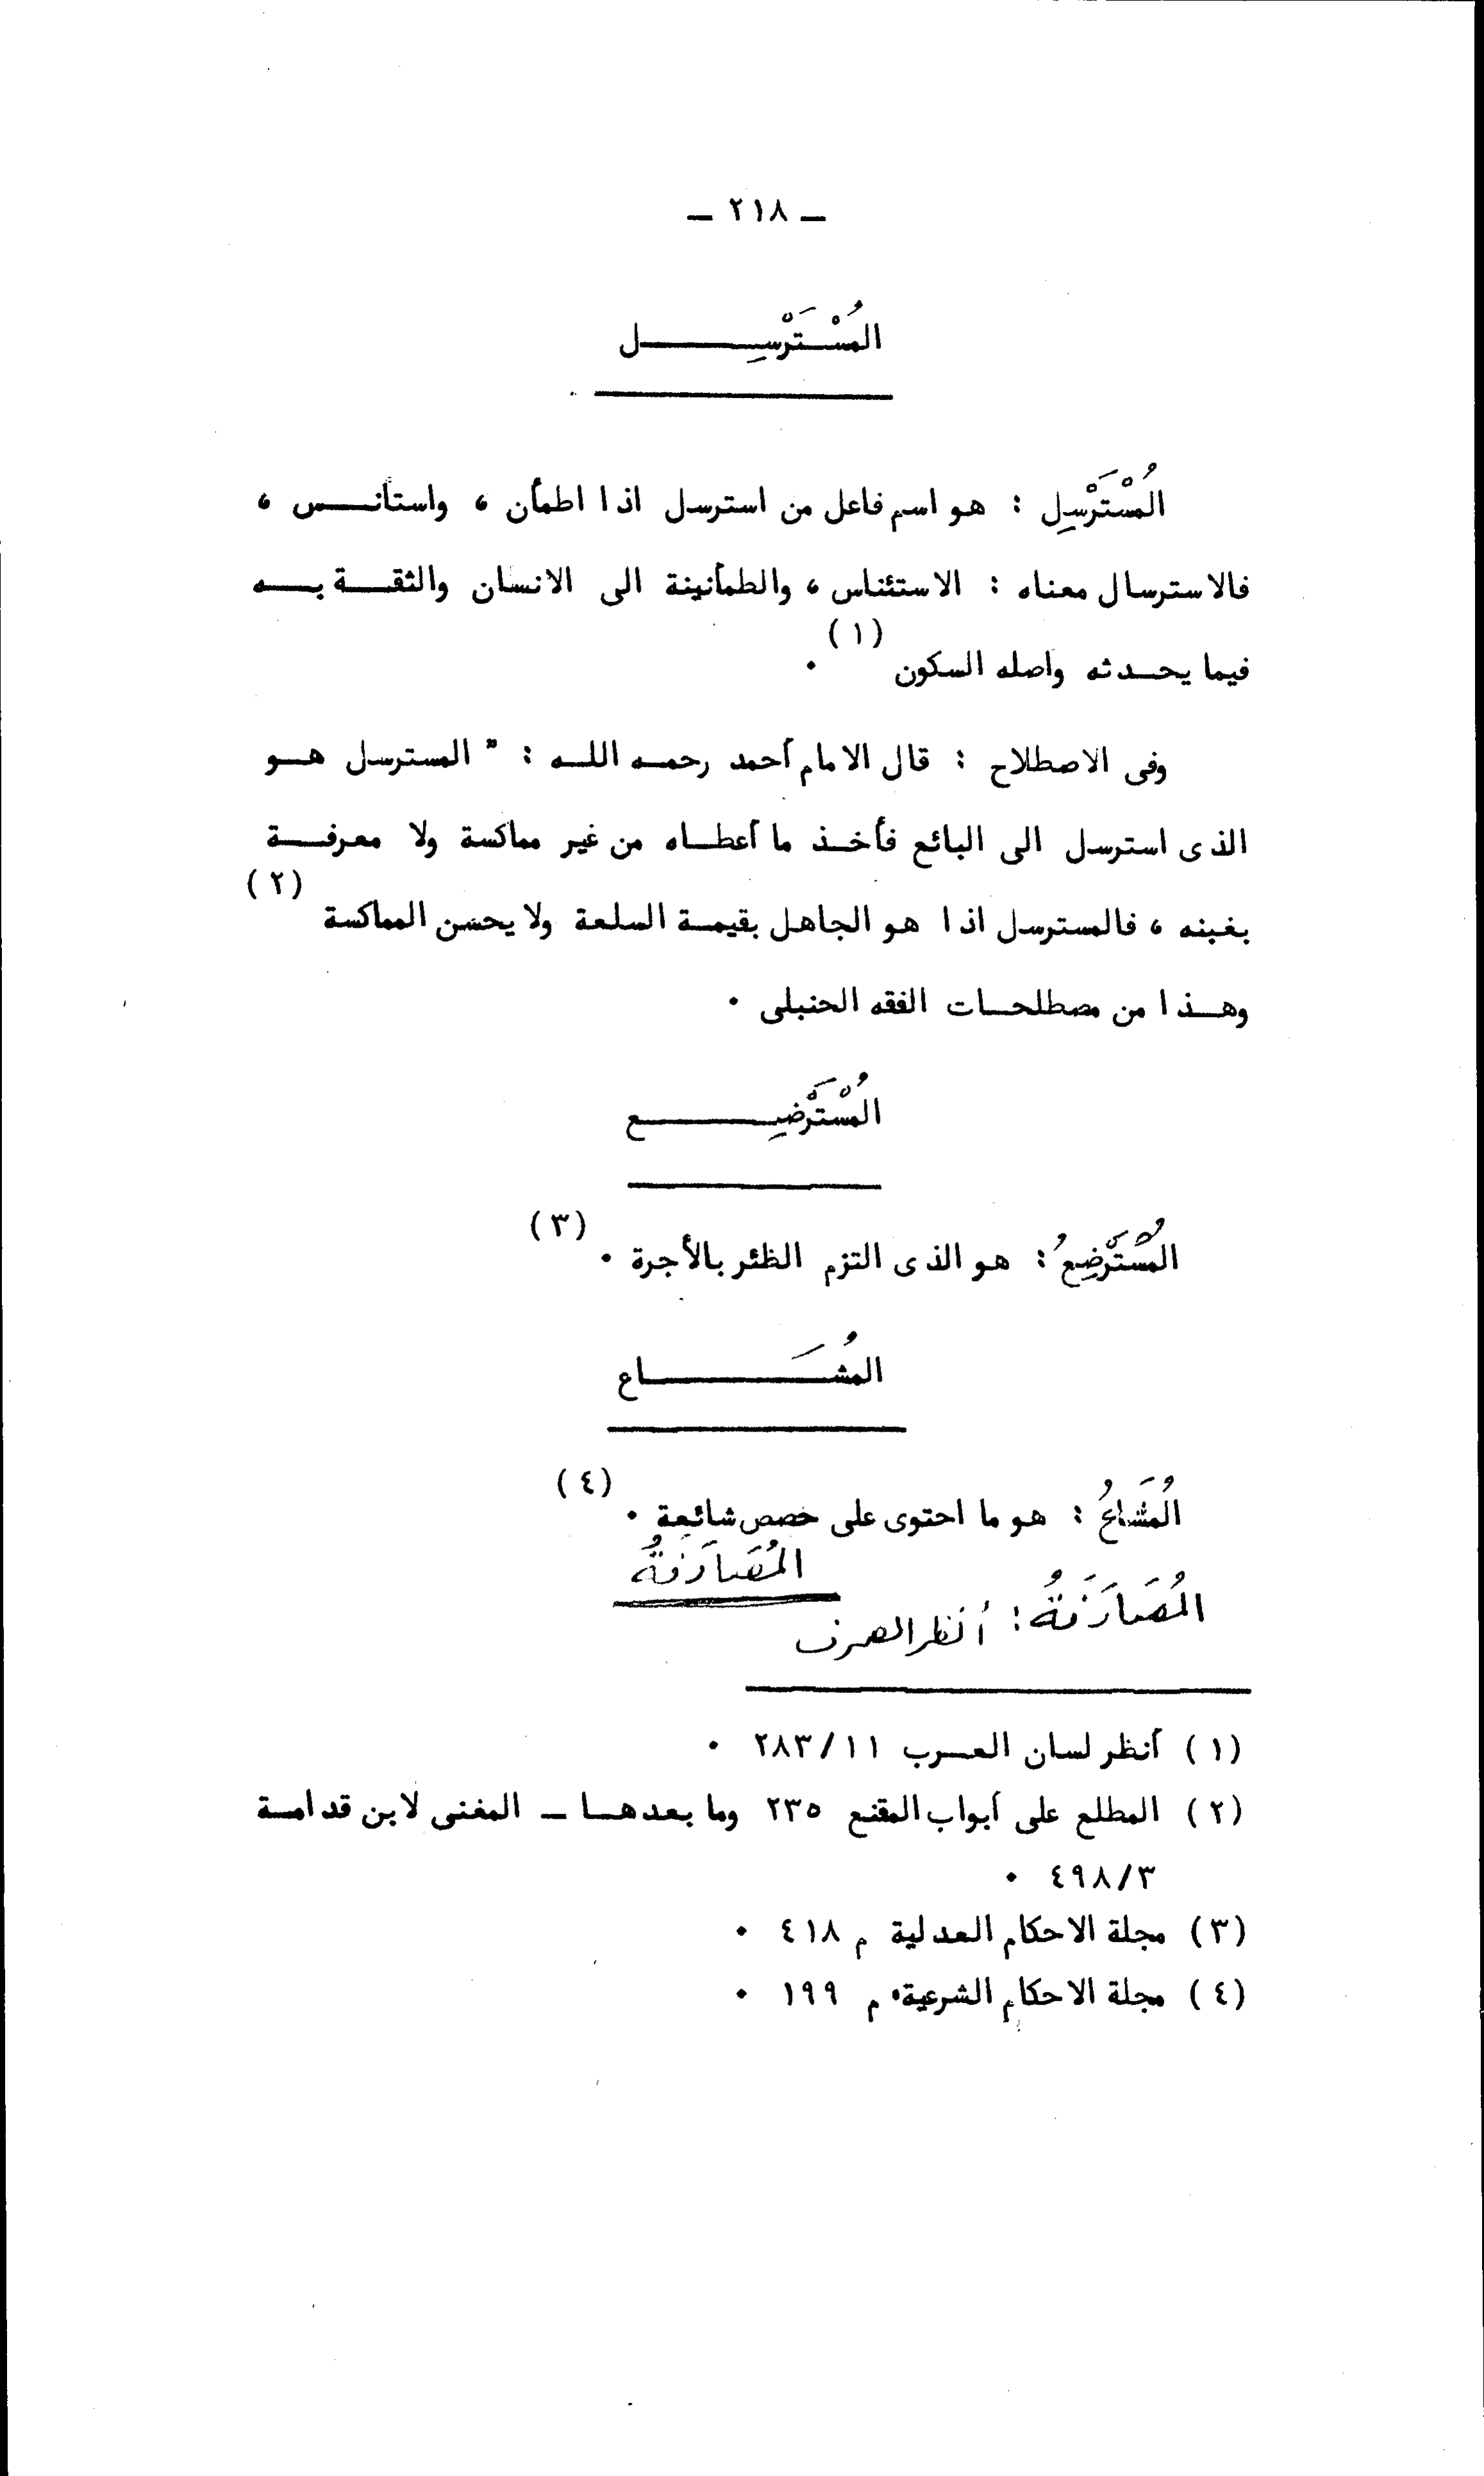 ـ ٢١٨ ـ
المُسْتَرْسِــــــــل
المُسْتَرْسِل : هو اسم فاعل من استرسل اذا اطمأن ، واستأنــس ،
فالاسترسال معناه : الاستئناس ، والطمأنينة الى الانسان والثقــة بــه
فيما يحــدثه واصله السكون (١) .
وفى الاصطلاح : قال الامام أحمد رحمـه اللـه : " المسترسل هـو
الذى استرسل الى البائع فأخـذ ما أعطـاه من غير مماكسة ولا معرفــة
بغبنه ، فالمسترسل اذا هو الجاهل بقيمـة السلعة ولا يحسن المماكسة (٢)
وهـذا من مصطلحـات الفقه الحنبلى .
المُسْتَرْضِــــــــع
المُسْتَرْضِعُ : هو الذى التزم الظئر بالأجرة . (٣)
المُشَــــــــاع
المُشَاعُ : هو ما احتوى على حصص شائعة . (٤)
المُصَارَفَةُ
المُصَارَفَةُ : أنظر الصرف
(١) أنظر لسان العـرب ٢٨٣/١١ .
(٢) المطلع على أبواب المقنع ٢٣٥ وما بعدهـا ـ المغنى لابن قدامـة
٤٩٨/٣ .
(٣) مجلة الاحكام العدلية م ٤١٨ .
(٤) مجلة الاحكام الشرعية م ١٩٩ .